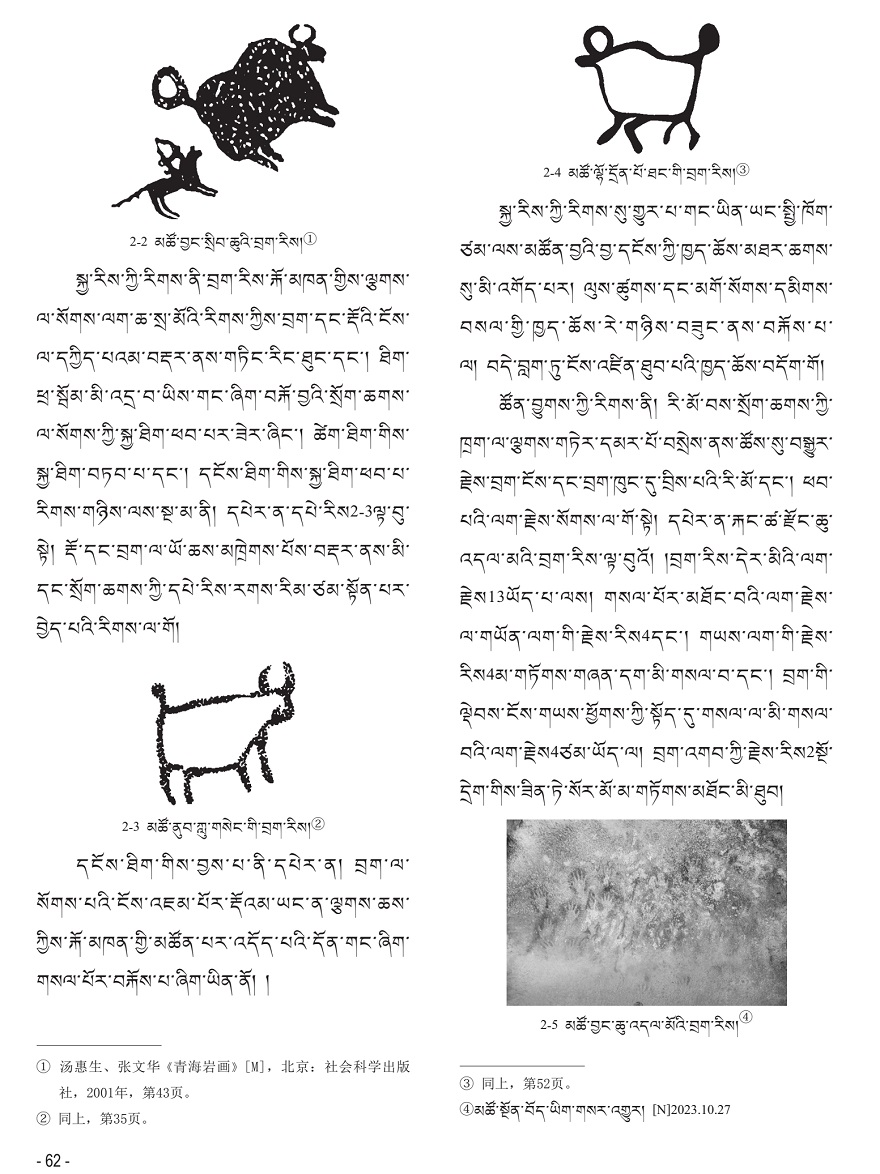 2-2 མཚོ་བྱང་སྲིབ་ཆུའི་བྲག་རིས།①
སྐྱ་རིས་ཀྱི་རིགས་ནི་བྲག་རིས་རྐོ་མཁན་གྱིས་ལྕགས་
ལ་སོགས་ལག་ཆ་སྲ་མོའི་རིགས་ཀྱིས་བྲག་དང་རྡོའི་ངོས་
ལ་དཀྱིད་པའམ་བརྡར་ནས་གཏིང་རིང་ཐུང་དང་། ཐིག་
ཕྲ་སྦོམ་མི་འདྲ་བ་ཡིས་གང་ཞིག་བརྐོ་བྱའི་སྲོག་ཆགས་
ལ་སོགས་ཀྱི་སྐྱ་ཐིག་ཕབ་པར་ཟེར་ཞིང་། ཚེག་ཐིག་གིས་
སྐྱ་ཐིག་བཏབ་པ་དང་། དངོས་ཐིག་གིས་སྐྱ་ཐིག་ཕབ་པ་
རིགས་གཉིས་ལས་སྔ་མ་ནི། དཔེར་ན་དཔེ་རིས2-3ལྟ་བུ་
སྟེ། རྡོ་དང་བྲག་ལ་ཡོ་ཆས་མཁྲེགས་པོས་བརྡར་ནས་མི་
དང་སྲོག་ཆགས་ཀྱི་དཔེ་རིས་རགས་རིམ་ཙམ་སྟོན་པར་
བྱེད་པའི་རིགས་ལ་གོ།
2-3 མཚོ་ནུབ་ཀླུ་གསེང་གི་བྲག་རིས།②
དངོས་ཐིག་གིས་བྱས་པ་ནི་དཔེར་ན། བྲག་ལ་
སོགས་པའི་ངོས་འཇམ་པོར་རྡོའམ་ཡང་ན་ལྕགས་ཆས་
ཀྱིས་རྐོ་མཁན་གྱི་མཚོན་པར་འདོད་པའི་དོན་གང་ཞིག་
གསལ་པོར་བརྐོས་པ་ཞིག་ཡིན་ནོ། །
① 汤惠生、张文华《青海岩画》[M]，北京：社会科学出版
社，2001年，第43页。
② 同上，第35页。
2-4 མཚོ་ལྷོ་དྲོན་པོ་ཐང་གི་བྲག་རིས།③
སྐྱ་རིས་ཀྱི་རིགས་སུ་གྱུར་པ་གང་ཡིན་ཡང་སྤྱི་ཁོག་
ཙམ་ལས་མཚོན་བྱའི་བྱ་དངོས་ཀྱི་ཁྱད་ཆོས་མཐར་ཆགས་
སུ་མི་འགོད་པར། ལུས་ཚུགས་དང་མགོ་སོགས་དམིགས་
བསལ་གྱི་ཁྱད་ཆོས་རེ་གཉིས་བཟུང་ནས་བརྐོས་པ་
ལ། བདེ་བླག་ཏུ་ངོས་འཛིན་ཐུབ་པའི་ཁྱད་ཆོས་བདོག་གོ།
ཚོན་བྱུགས་ཀྱི་རིགས་ནི། རི་མོ་བས་སྲོག་ཆགས་ཀྱི་
ཁྲག་ལ་ལྕགས་གཏེར་དམར་པོ་བསྲེས་ནས་ཚོས་སུ་བསྒྱུར་
རྗེས་བྲག་ངོས་དང་བྲག་ཁུང་དུ་བྲིས་པའི་རི་མོ་དང་། ཕབ་
པའི་ལག་རྗེས་སོགས་ལ་གོ་སྟེ། དཔེར་ན་རྐང་ཚ་རྫོང་ཆུ་
འདལ་མའི་བྲག་རིས་ལྟ་བུའོ། །བྲག་རིས་དེར་མིའི་ལག་
རྗེས13ཡོད་པ་ལས། གསལ་པོར་མཐོང་བའི་ལག་རྗེས་
ལ་གཡོན་ལག་གི་རྗེས་རིས4དང་། གཡས་ལག་གི་རྗེས་
རིས4མ་གཏོགས་གཞན་དག་མི་གསལ་བ་དང་། བྲག་གི་
ལྡེབས་ངོས་གཡས་ཕྱོགས་ཀྱི་སྟོད་དུ་གསལ་ལ་མི་གསལ་
བའི་ལག་རྗེས4ཙམ་ཡོད་ལ། བྲག་འགབ་ཀྱི་རྗེས་རིས2སྔོ་
དྲེག་གིས་ཟིན་ཏེ་སོར་མོ་མ་གཏོགས་མཐོང་མི་ཐུབ།
2-5 མཚོ་བྱང་ཆུ་འདལ་མོའི་བྲག་རིས།④
③ 同上，第52页。
④མཚོ་སྔོན་བོད་ཡིག་གསར་འགྱུར། [N]2023.10.27
- 62 -